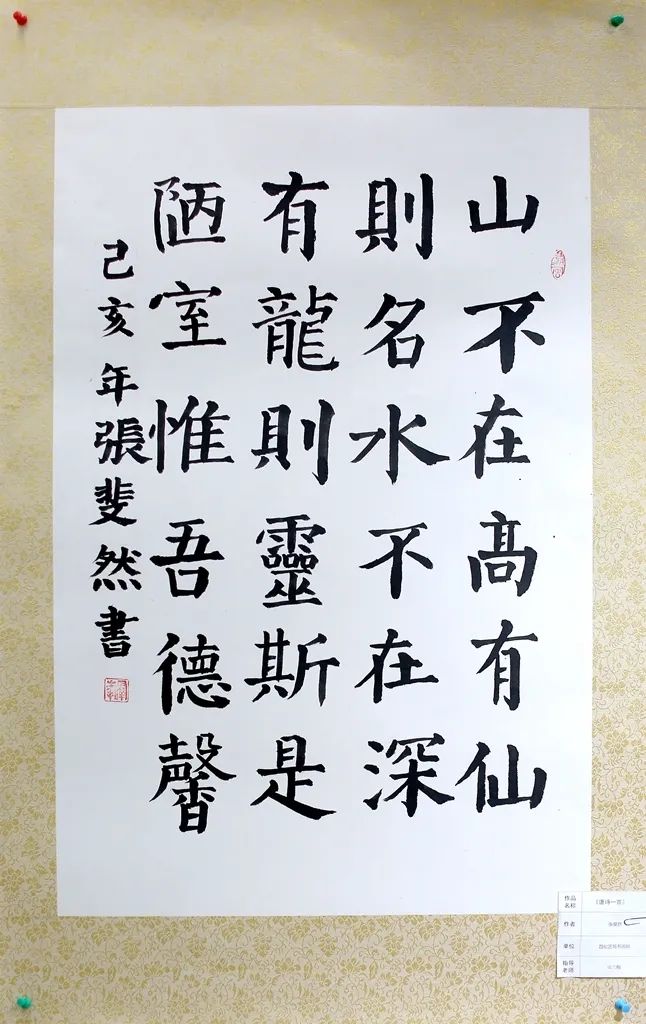 山不在高有仙
則名水不在深
有龍則靈斯是
陋室惟吾德馨
己亥年張斐然書
作品名称 《唐诗一首》
作者 张斐然
单位
指导老师